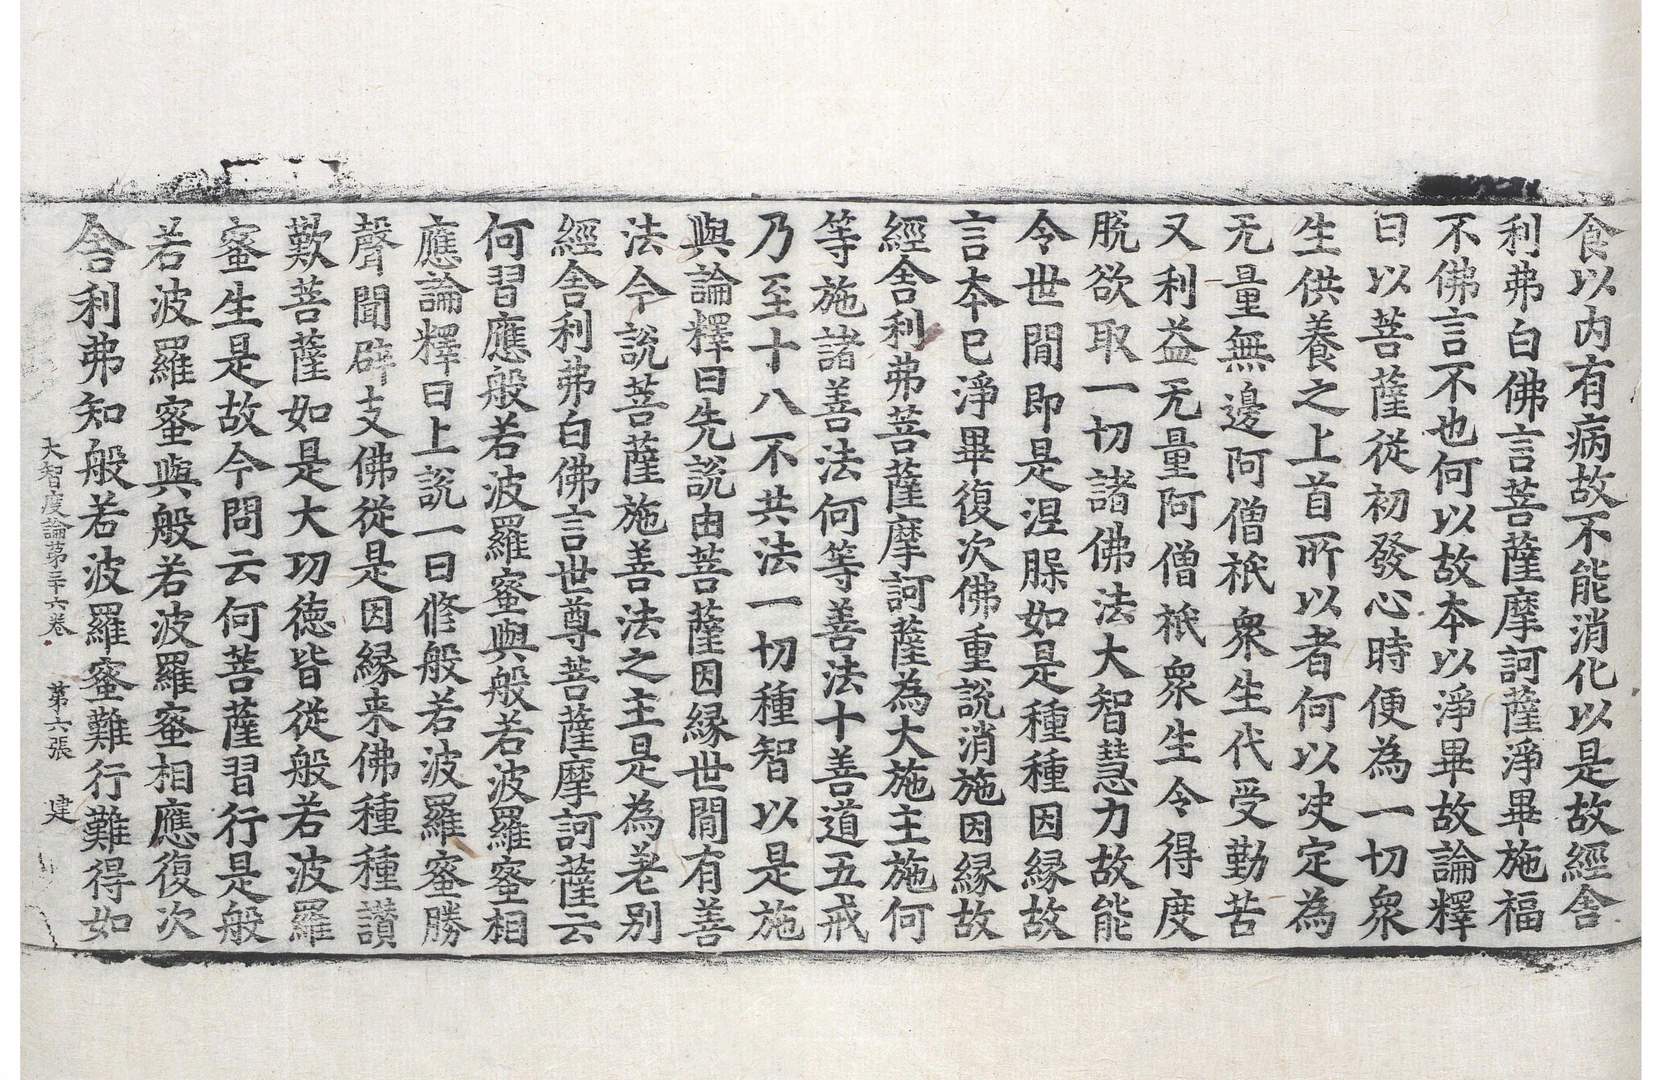 食以内有病故不能消化以是故經舍
利弗白佛言菩薩摩訶薩淨畢施福
不佛言不也何以故本以淨畢故論釋
曰以菩薩從初發心時便為一切衆
生供養之上首所以者何以决定為
无量無邊阿僧祇衆生代受勤苦
又利益无量阿僧祇衆生令得度
脫欲取一切諸佛法大智慧力故能
令世閒即是涅槃如是種種因縁故
言本已淨畢復次佛重說消施因縁故
經舍利弗菩薩摩訶薩為大施主施何
等施諸善法何等善法十善道五戒
乃至十八不共法一切種智以是施
與論釋曰先說由菩薩因縁世閒有善
法今說菩薩施善法之主是為差別
經舍利弗白佛言世尊菩薩摩訶薩云
何習應般若波羅蜜與般若波羅蜜相
應論釋曰上說一日修般若波羅蜜勝
聲聞辟支佛從是因縁来佛種種讃
歎菩薩如是大功德皆從般若波羅
蜜生是故今問云何菩薩習行是般
若波羅蜜與般若波羅蜜相應復次
舍利弗知般若波羅蜜難行難得如
大智度論第三十六卷 第六張 建